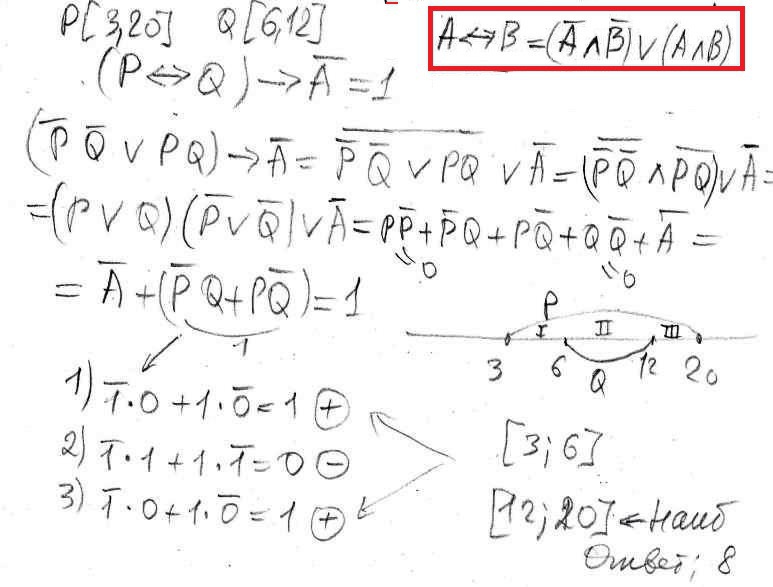 P[3,20] Q[6,12]
A⇔B=(A̅∧B̅)∨(A∧B)
(P⇔Q)→A̅=1
(P̅ Q̅ ∨ PQ)→A̅= \overline{P̅ Q̅ ∨ PQ} ∨A̅=(\overline{P̅Q̅} ∧ \overline{PQ})∨A̅=
=(P∨Q)(P̅∨Q̅)∨A̅=PP̅+P̅Q+PQ̅+QQ̅+A̅=
0 0
= A̅+(P̅Q+PQ̅)=1
1
P
I II III
3 6 Q 12 20
1) 1̅·0+1·0̅=1 ⊕
2) 1̅·1+1·1̅=0 ⊖
3) 1̅·0+1·0̅=1 ⊕
[3;6]
[12;20]←Наиб
Ответ; 8